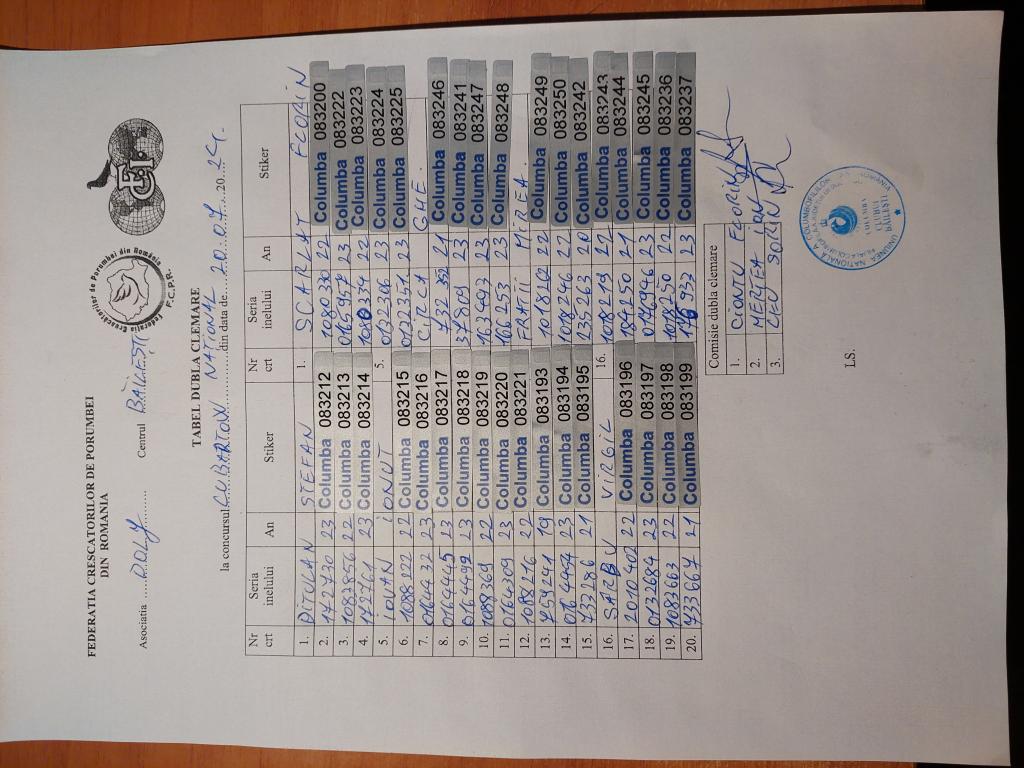 FEDERATIA CRESCATORILOR DE PORUMBEI
DIN ROMANIA
Federația Crescătorilor de Porumbei din România
F.C.P.R.
Asociatia ....DOLJ.......... Centrul BĂILEȘTI
TABEL DUBLA CLEMARE
la concursul.......NATIONAL.......din data de...20.07.....20...24.
Nr crt Seria inelului An Stiker Nr crt Seria inelului An Stiker
1. STEFAN 1. SCARLAT FLORIN
2. 172730 23 Columba 083212 1080330 22 Columba 083200
3. 1083856 22 Columba 083213 23 Columba 083222
4. 172761 23 Columba 083214 22 Columba 083223
5. IOVAN IONUT 5. 0122306 23 Columba 083224
6. 1088222 22 Columba 083215 0122351 23 Columba 083225
7. 0164432 23 Columba 083216 CIRCA GHE.
8. 0164445 23 Columba 083217 732352 21 Columba 083246
9. 0164499 23 Columba 083218 37809 23 Columba 083241
10. 1088369 22 Columba 083219 163493 23 Columba 083247
11. 0164309 23 Columba 083220 166253 23 Columba 083248
12. 1018216 22 Columba 083221 FRATII MIREA.
13. 759241 19 Columba 083193 1018262 22 Columba 083249
14. 0164474 23 Columba 083194 1018246 22 Columba 083250
15. 733286 21 Columba 083195 235263 20 Columba 083242
16. SARBU VIRGIL 16. 1018219 22 Columba 083243
17. 2010402 22 Columba 083196 184250 21 Columba 083244
18. 0132684 23 Columba 083197 0176946 23 Columba 083245
19. 1083663 22 Columba 083198 1018250 22 Columba 083236
20. 733667 21 Columba 083199 176933 23 Columba 083237
Comisie dubla clemare
1. CIONTU FLORIN
2. MERTEA ION
3. SORIN
LS.
UNIUNEA NATIONALA A COLUMBOFILILOR DIN ROMANIA
COLUMBA
CLUBUL
BĂILEȘTI